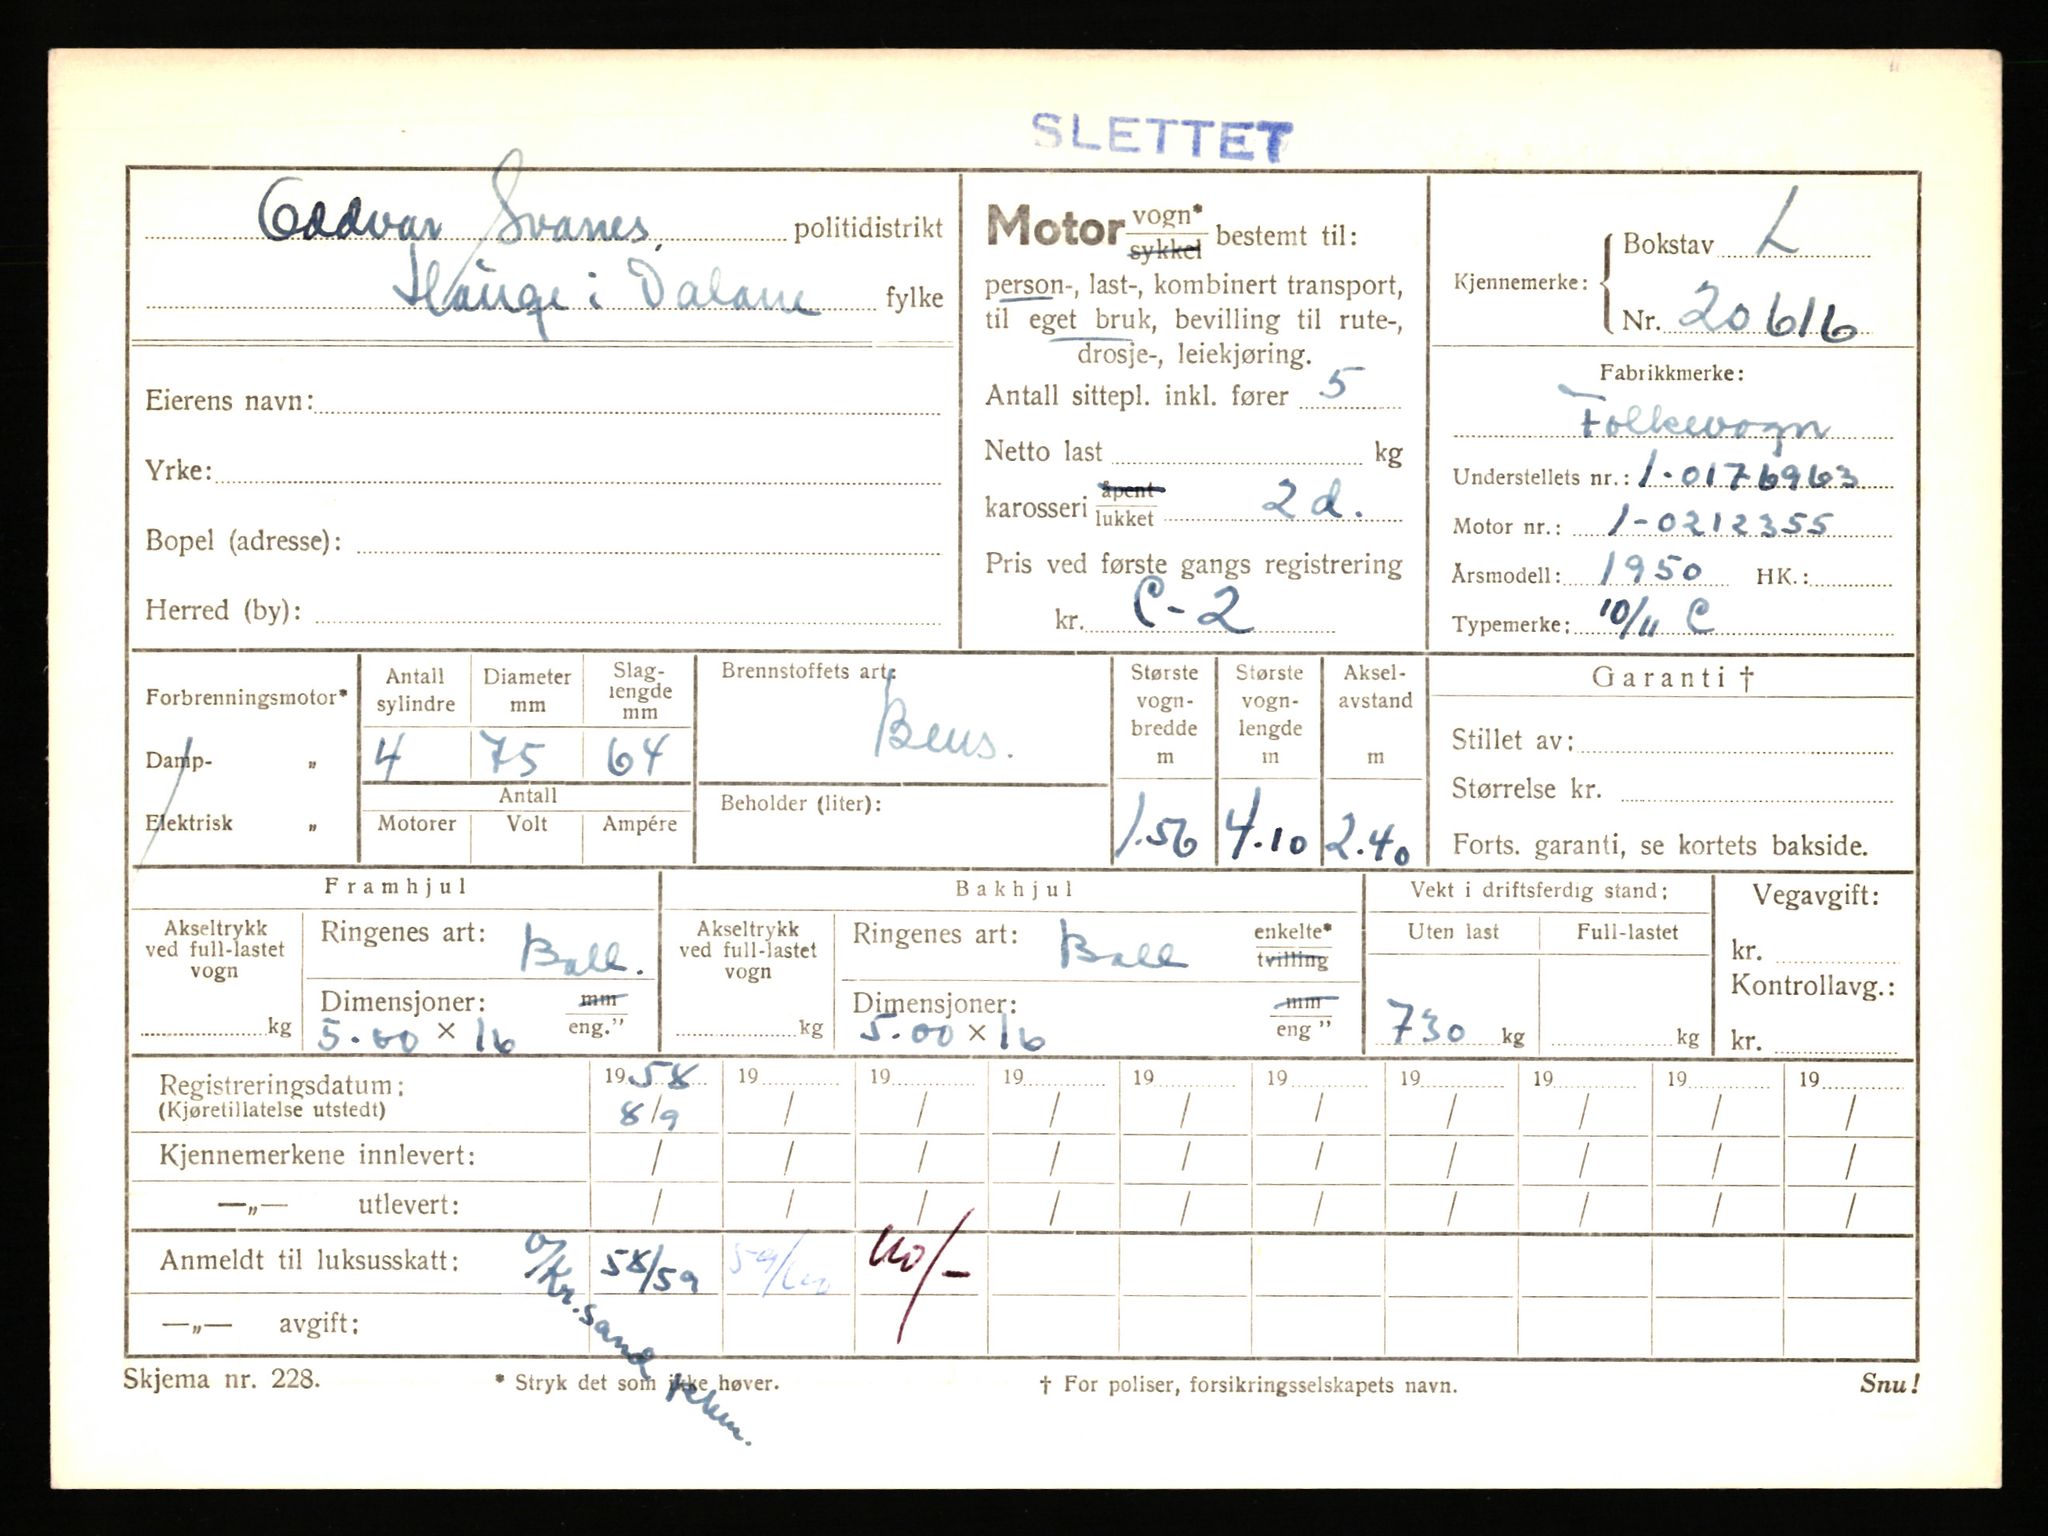 SLETTET
Oddvar Svanes, politidistrikt
Hauge i Dalane fylke
Eierens navn:
Yrke:
Bopel (adresse):
Herred (by):
Motor vogn* sykkel bestemt til:
person-, last-, kombinert transport,
til eget bruk, bevilling til rute-,
drosje-, leiekjøring.
Antall sittepl. inkl. fører 5
Netto last kg
karosseri åpent lukket 2 d.
Pris ved første gangs registrering
kr. C-2
Kjennemerke: Bokstav L
Nr. 20616
Fabrikkmerke:
Folkevogn
Understellets nr.: 1-0176963
Motor nr.: 1-0212355
Årsmodell: 1950 HK.:
Typemerke: 10/11 C
Forbrenningsmotor*
Damp- „
Elektrisk „
Antall sylindre
Diameter mm
Slag-lengde mm
4 75 64
Antall
Motorer Volt Ampére
Brennstoffets art:
Bens.
Beholder (liter):
Største vogn-bredde m
Største vogn-lengde m
Aksel-avstand m
1.56 4.10 2.40
Garanti †
Stillet av:
Størrelse kr.
Forts. garanti, se kortets bakside.
Framhjul
Akseltrykk ved full-lastet vogn
kg
Ringenes art: Ball.
Dimensjoner: mm eng."
5.00 × 16
Bakhjul
Akseltrykk ved full-lastet vogn
kg
Ringenes art: Ball enkelte* tvilling
Dimensjoner: mm eng "
5.00 × 16
Vekt i driftsferdig stand:
Uten last Full-lastet
730 kg kg
Vegavgift:
kr.
Kontrollavg.:
kr.
Registreringsdatum: 1958 19 19 19 19 19 19 19 19 19
(Kjøretillatelse utstedt) 8/9 / / / / / / / / /
Kjennemerkene innlevert: / / / / / / / / / /
—„— utlevert: / / / / / / / / / /
Anmeldt til luksusskatt: 58/59 59/60 60/-
—„— avgift:
Kr.sand
Skjema nr. 228.
* Stryk det som ikke høver.
† For poliser, forsikringsselskapets navn.
Snu!